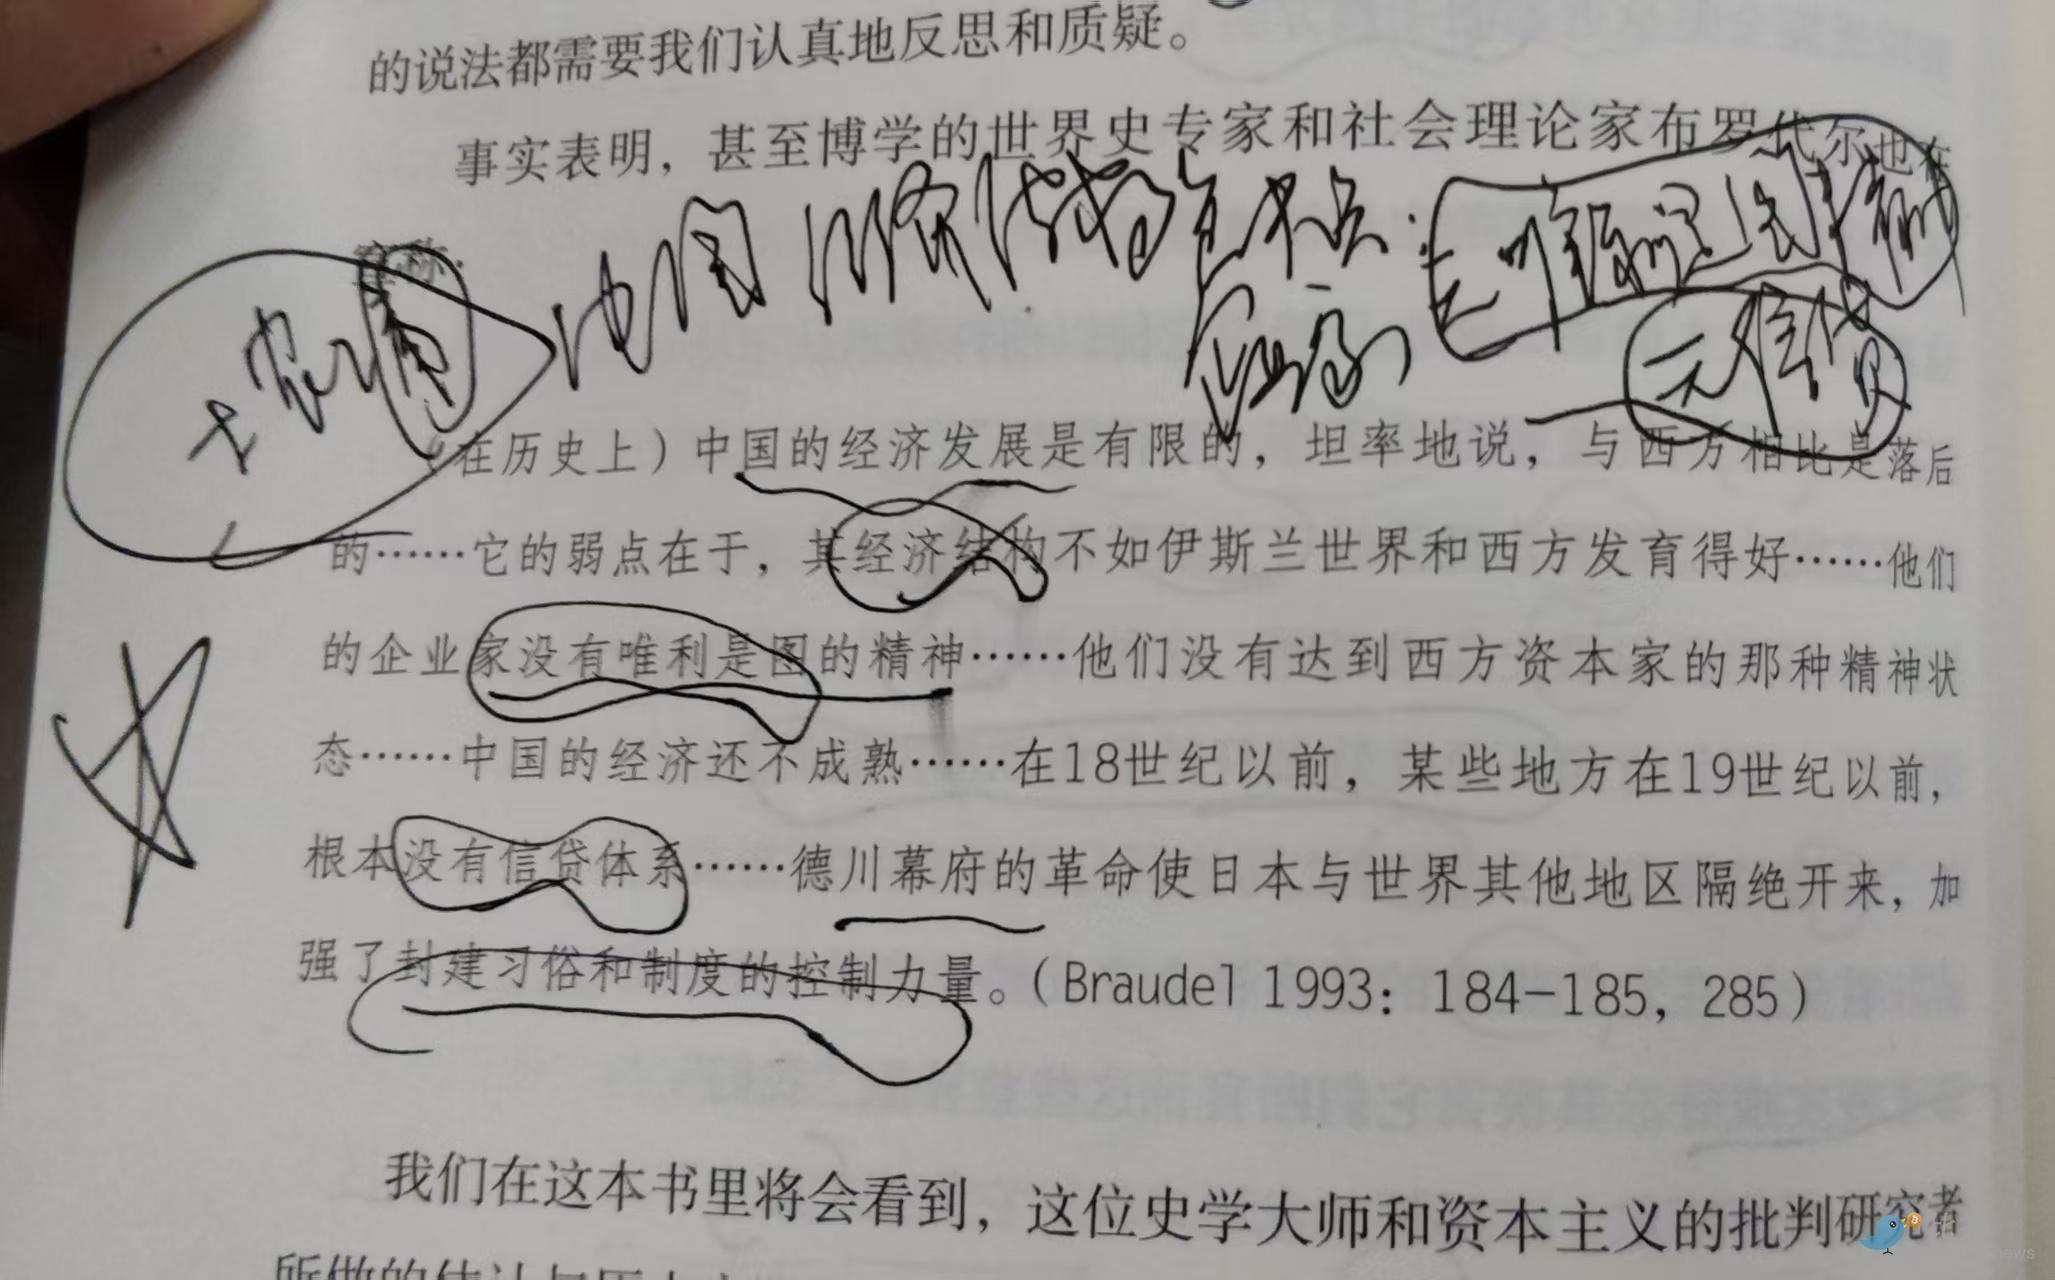 的说法都需要我们认真地反思和质疑。
事实表明，甚至博学的世界史专家和社会理论家布罗代尔也在
宣称：
中国经济
企业家
无信贷
士农工商
（在历史上）中国的经济发展是有限的，坦率地说，与西方相比是落后
的……它的弱点在于，其经济结构不如伊斯兰世界和西方发育得好……他们
的企业家没有唯利是图的精神……他们没有达到西方资本家的那种精神状
态……中国的经济还不成熟……在18世纪以前，某些地方在19世纪以前，
根本没有信贷体系……德川幕府的革命使日本与世界其他地区隔绝开来，加
强了封建习俗和制度的控制力量。（Braudel 1993：184-185，285）
我们在这本书里将会看到，这位史学大师和资本主义的批判研究者
news